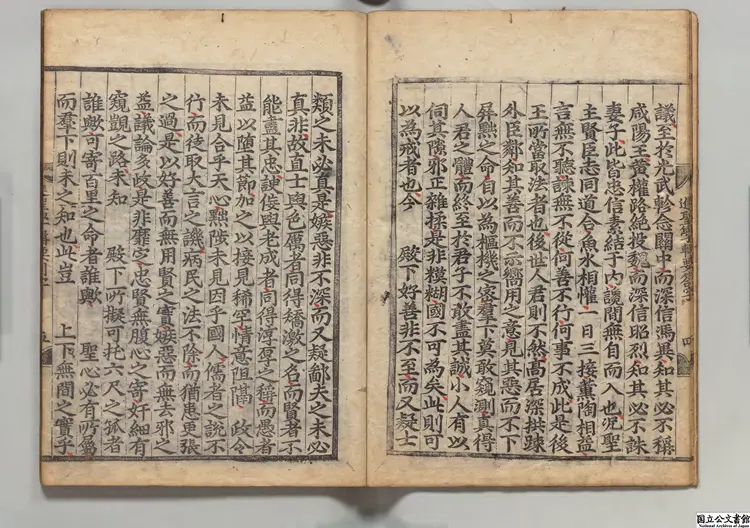 議至於光武軫念關中而深信馮異知其必不稱
咸陽王黃權路絶投魏而深信昭烈知其必不誅
妻子此皆忠信素結于内讒間無自而入也況聖
主賢臣志同道合魚水相懽一日三接薫陶相益
言無不聽諫無不從何善不行何事不成此是後
王所當取法者也後世人君則不然高居深拱踈
外臣鄰知其善而不示嚮用之意見其惡而不下
屏黜之命自以為樞機之密羣下莫敢窺測眞得
人君之體而終至於君子不敢盡其誠小人有以
伺其隙邪正雜揉是非糢糊國不可為矣此則可
以為戒者也今 殿下好善非不至而又疑士
類之未必眞是嫉惡非不深而又疑鄙夫之未必
眞非故直士與色厲者同得矯激之名而賢者不
能盡其忠諛侯與老成者同得淳厚之稱而愚者
益以隨其節加之以接見稀罕情意阻隔 政令
未見合乎天心黜陟未見因乎國人儒者之說不
行而徒取大言之譏病民之法不除而猶患更張
之過是以好善而無用賢之實嫉惡而無去邪之
益議論多歧是非靡定忠賢無腹心之寄奸細有
窺覬之路未知 殿下所擬可托六尺之孤者
誰歟可寄百里之命者誰歟 聖心必有所屬
而羣下則未之知也此豈 上下無間之實乎
四
五
国立公文書館
National Archives of Japan